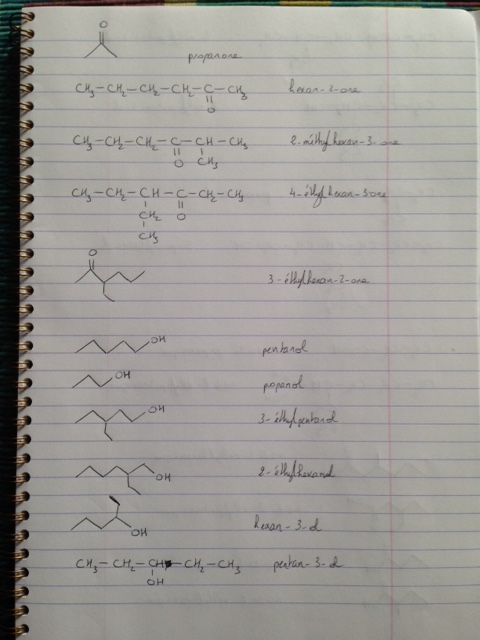 O
propanone
CH3-CH2-CH2-CH2-C-CH3 hexan-2-one
O
CH3-CH2-CH2-C-CH-CH3 2-méthylhexan-3-one
O CH3
CH3-CH2-CH-C-CH2-CH3 4-éthylhexan-3-one
CH2 O
CH3
O
3-éthylhexan-2-one
OH pentanol
OH propanol
OH 3-éthylpentanol
OH 2-éthylhexanol
OH hexan-3-ol
CH3-CH2-CH-CH2-CH3 pentan-3-ol
OH